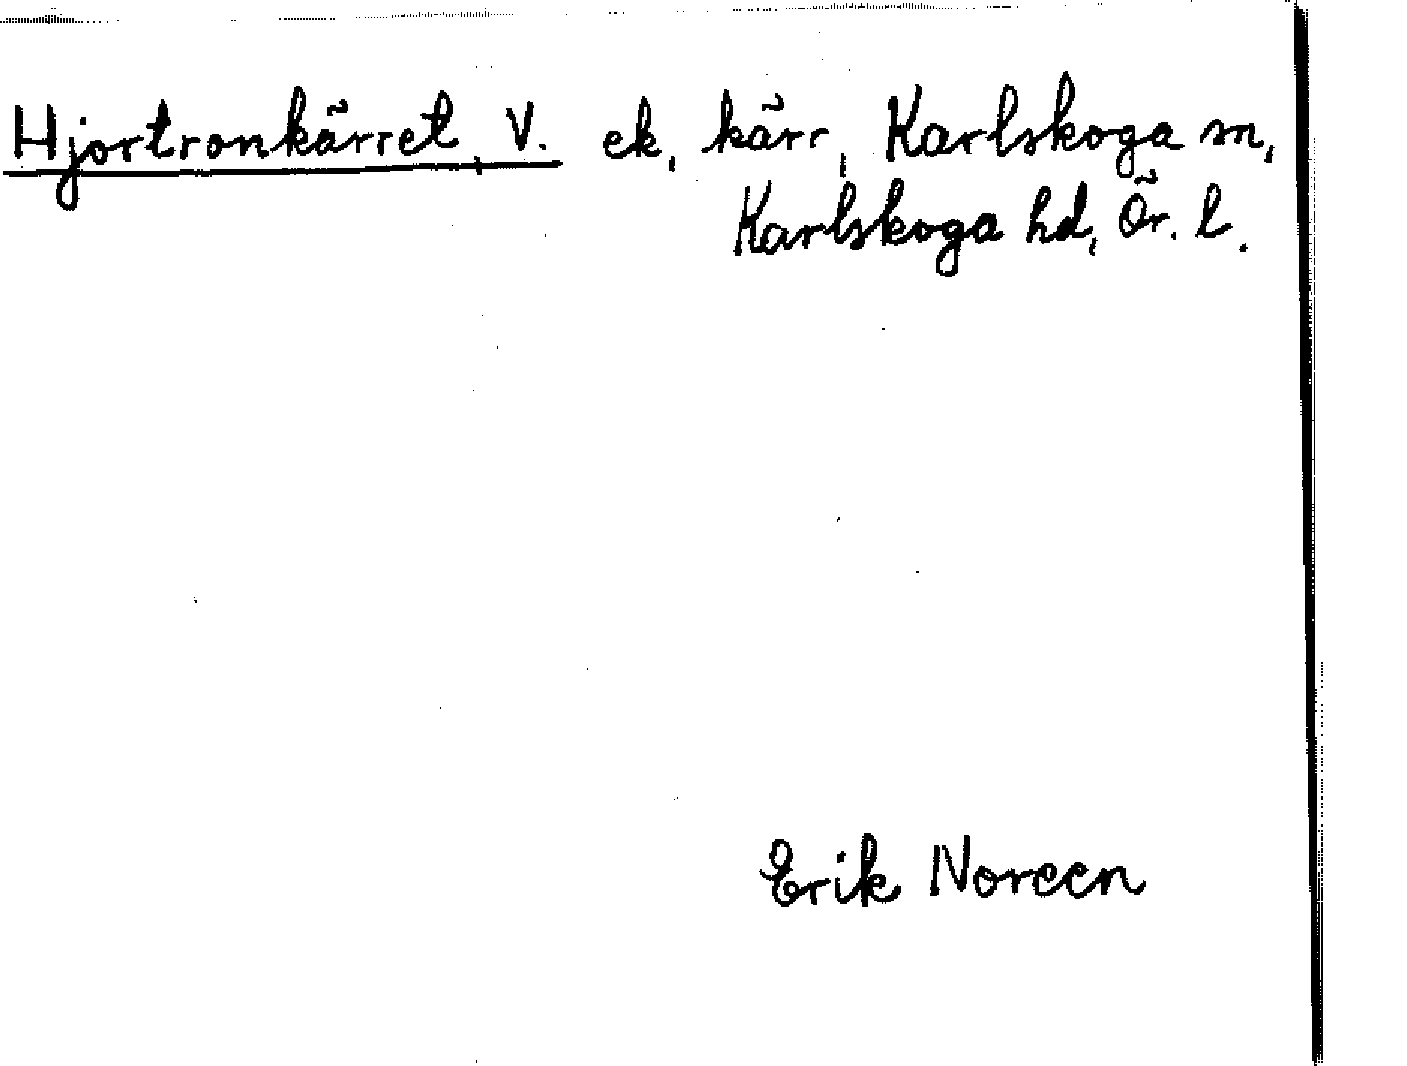 Hjortronkärret, V. ek, kärr, Karlskoga sn,
Karlskoga hd, Ör. l.
Erik Noreen